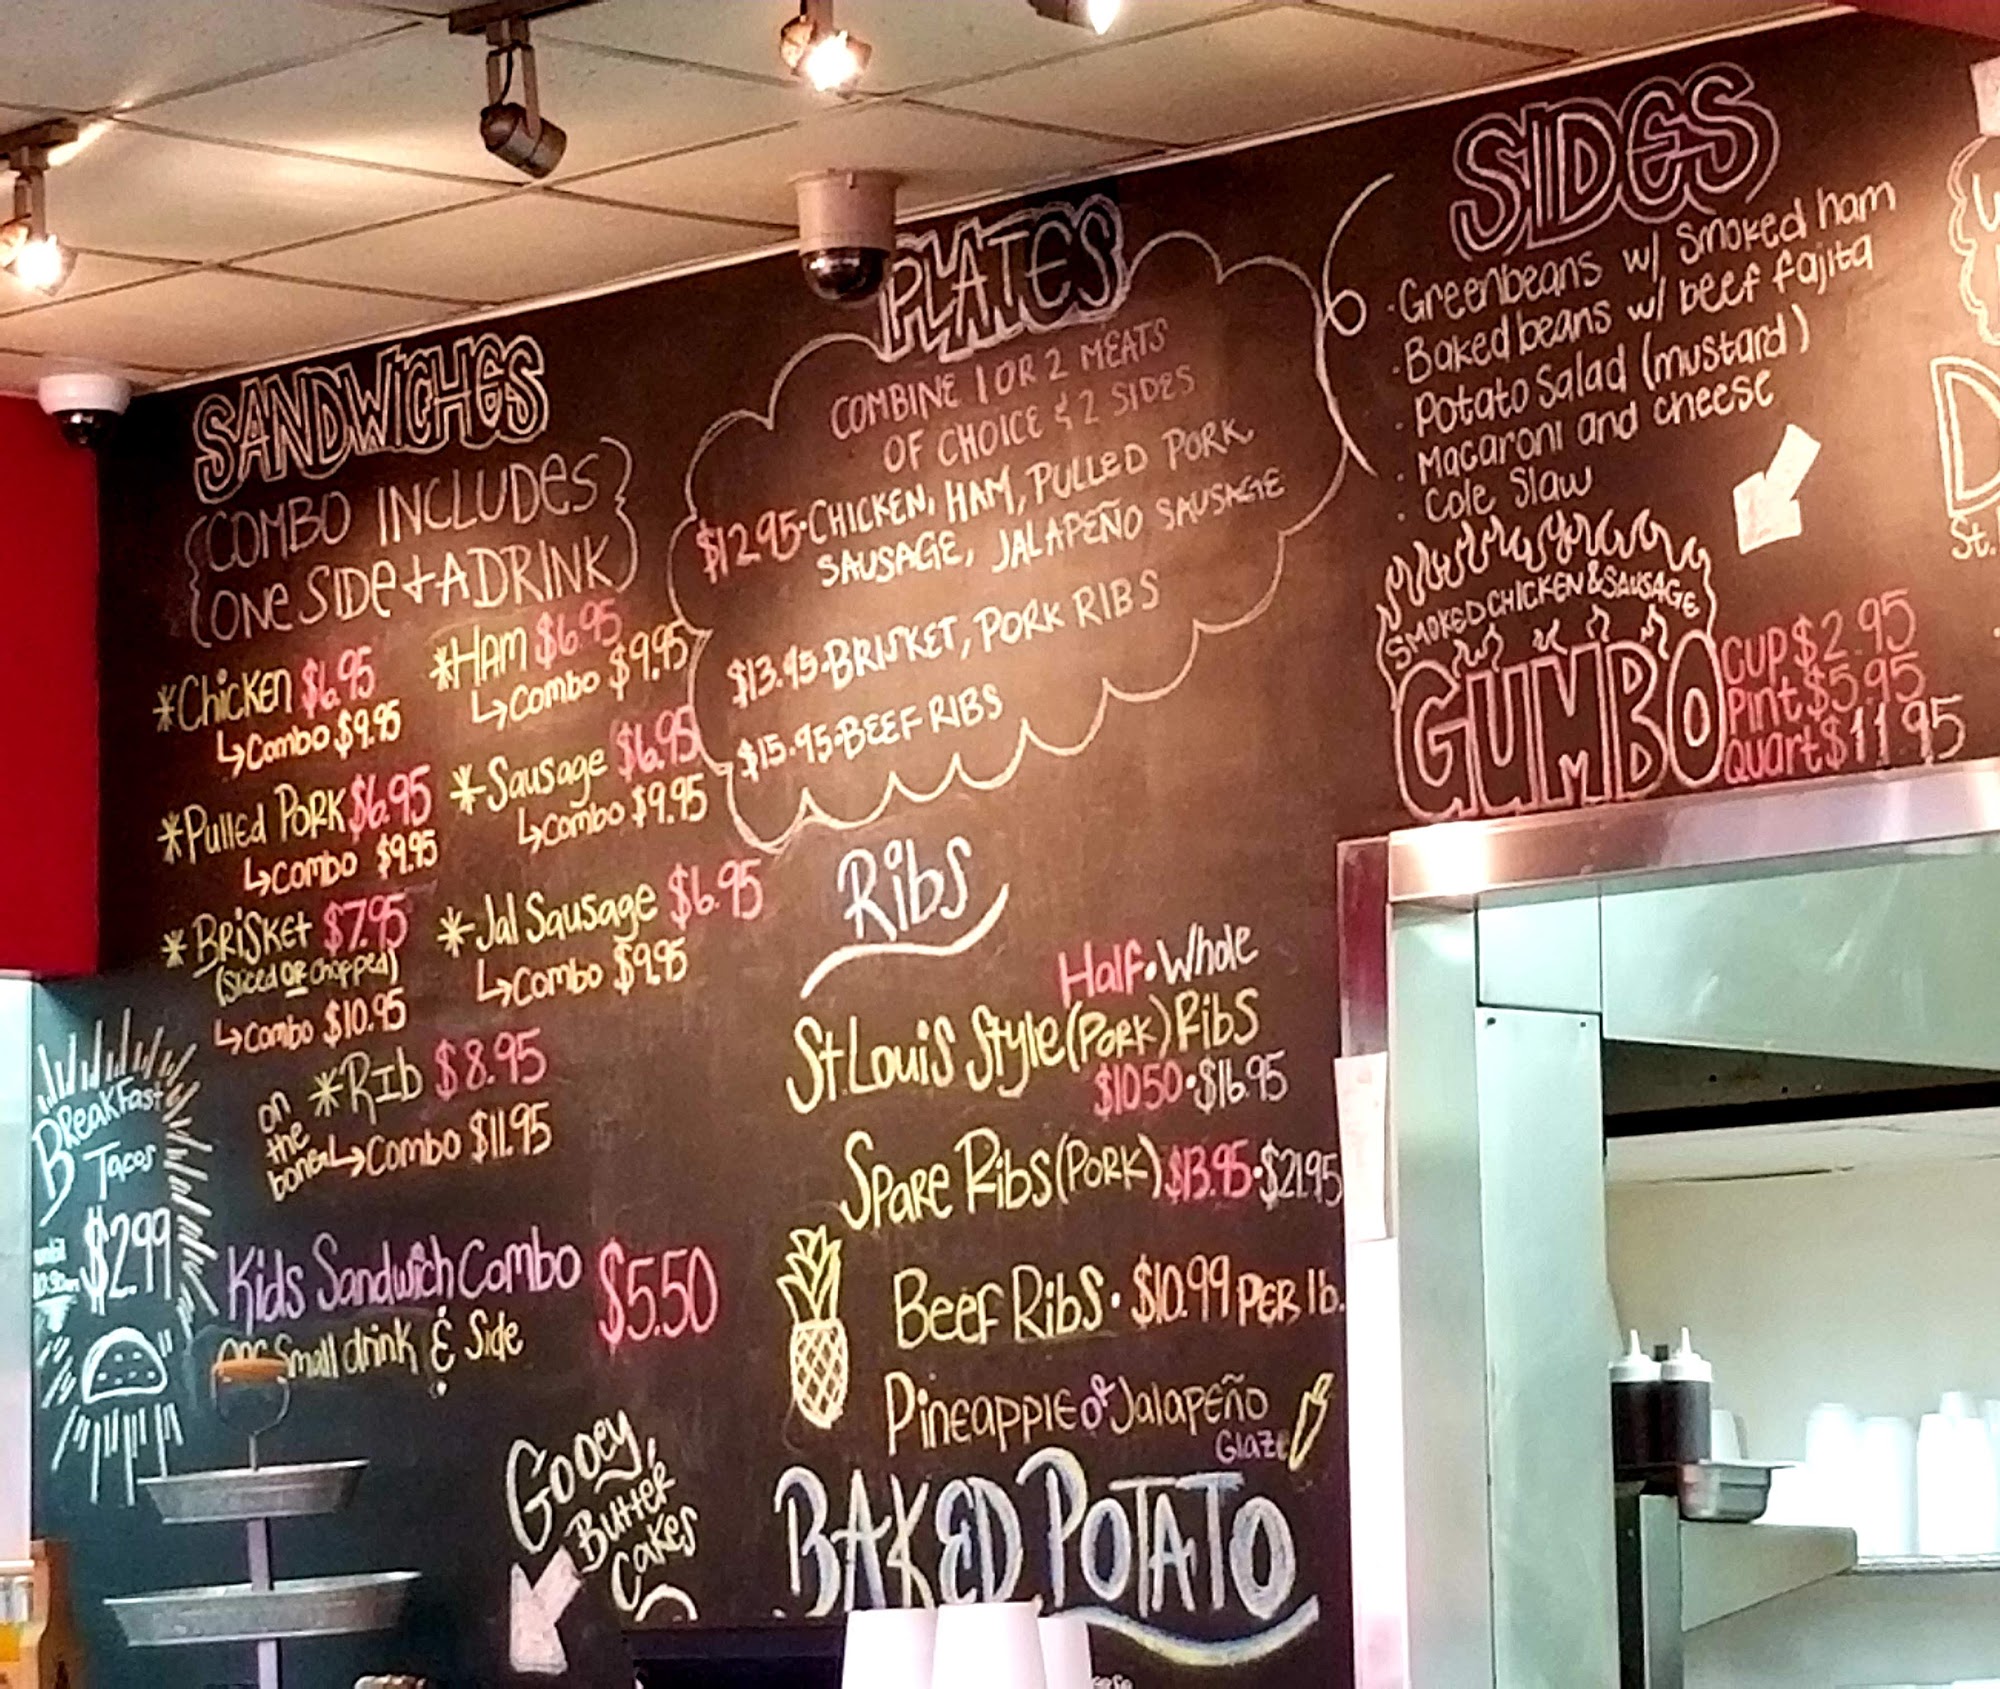 SANDWICHES
COMBO INCLUDES
ONE SIDE + A DRINK
*Chicken $6.95
↳Combo $9.95
*Pulled Pork $6.95
↳Combo $9.95
*Brisket $7.95
(Sliced OR Chopped)
↳Combo $10.95
*Ham $6.95
↳Combo $9.95
*Sausage $6.95
↳Combo $9.95
*Jal Sausage $6.95
↳Combo $9.95
*Rib $8.95
on the bone
↳Combo $11.95
Kids Sandwich Combo $5.50
Small drink & Side
Breakfast
Tacos
$2.99
until
10:30am
Gooey
Butter
Cakes
PLATES
COMBINE 1 OR 2 MEATS
OF CHOICE & 2 SIDES
$12.95·CHICKEN, HAM, PULLED PORK
SAUSAGE, JALAPEÑO SAUSAGE
$13.95·BRISKET, PORK RIBS
$15.95·BEEF RIBS
Ribs
Half·Whole
St. Louis Style (Pork) Ribs
$10.50·$16.95
Spare Ribs (Pork) $13.95·$21.95
Beef Ribs · $10.99 PER lb.
Pineapple or Jalapeño
Glaze
BAKED POTATO
SIDES
· Greenbeans w/ smoked ham
· Baked beans w/ beef fajita
· Potato Salad (mustard)
· Macaroni and cheese
· Cole Slaw
SMOKED CHICKEN & SAUSAGE
GUMBO
CUP $2.95
Pint $5.95
Quart $11.95
St.